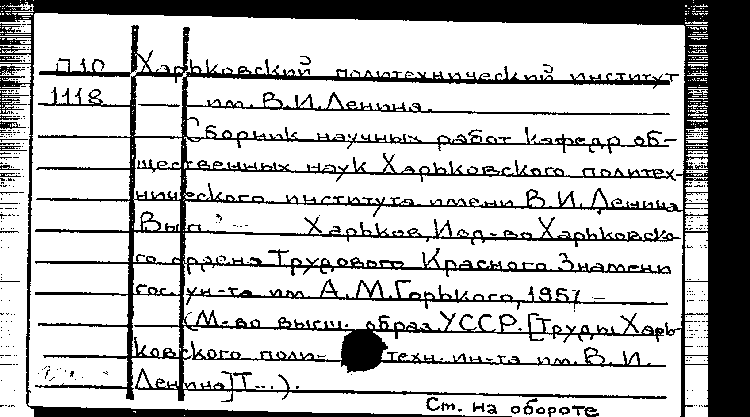 П10 Харьковский политехнический институт
1118 им. В.И.Ленина.
Сборник научных работ кафедр об-
щественных наук Харьковского политех-
нического института имени В.И. Ленина
Вып. – Харьков, Изд-во Харьковско-
го ордена Трудового Красного Знамени
гос. ун-та им. А.М.Горького, 1957 –
(М-во высш. образ. УССР. [Труды Харь-
ковского поли- техн. ин-та им. В. И.
Ленина] Т...).
Ст. на обороте